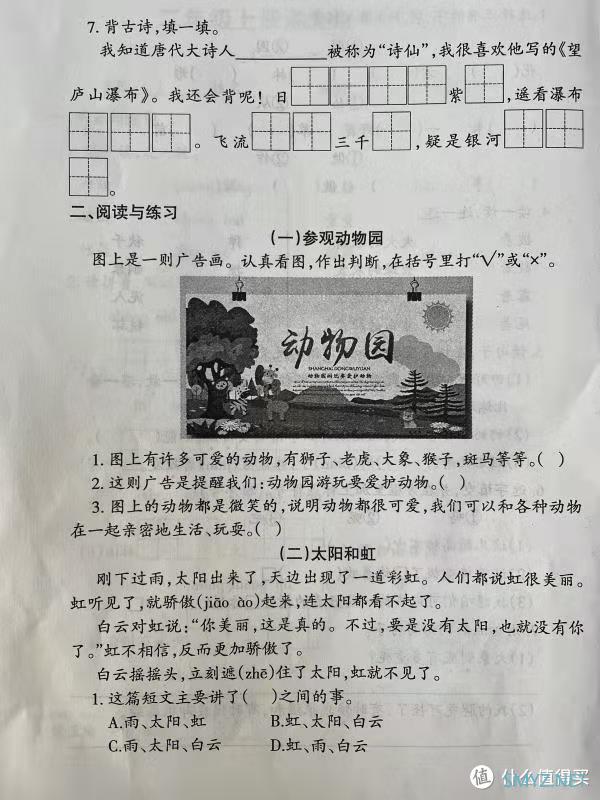 7. 背古诗，填一填。
我知道唐代大诗人________被称为“诗仙”，我很喜欢他写的《望
庐山瀑布》。我还会背呢！日□□□□紫□，遥看瀑布
□□□。飞流□□三千□，疑是银河□□
□。
二、阅读与练习
（一）参观动物园
图上是一则广告画。认真看图，作出判断，在括号里打“√”或“×”。
动物园
SHANGHAI DONGWUYUAN
动物园游玩要爱护动物
1. 图上有许多可爱的动物，有狮子、老虎、大象、猴子，斑马等等。（ ）
2. 这则广告是提醒我们：动物园游玩要爱护动物。（ ）
3. 图上的动物都是微笑的，说明动物都很可爱，我们可以和各种动物
在一起亲密地生活、玩耍。（ ）
（二）太阳和虹
刚下过雨，太阳出来了，天边出现了一道彩虹。人们都说虹很美丽。
虹听见了，就骄傲（jiāo ào）起来，连太阳都看不起了。
白云对虹说：“你美丽，这是真的。不过，要是没有太阳，也就没有你
了。”虹不相信，反而更加骄傲了。
白云摇摇头，立刻遮（zhē）住了太阳，虹就不见了。
1. 这篇短文主要讲了（ ）之间的事。
A.雨、太阳、虹 B.虹、太阳、白云
C.雨、太阳、白云 D.虹、雨、白云
值 什么值得买